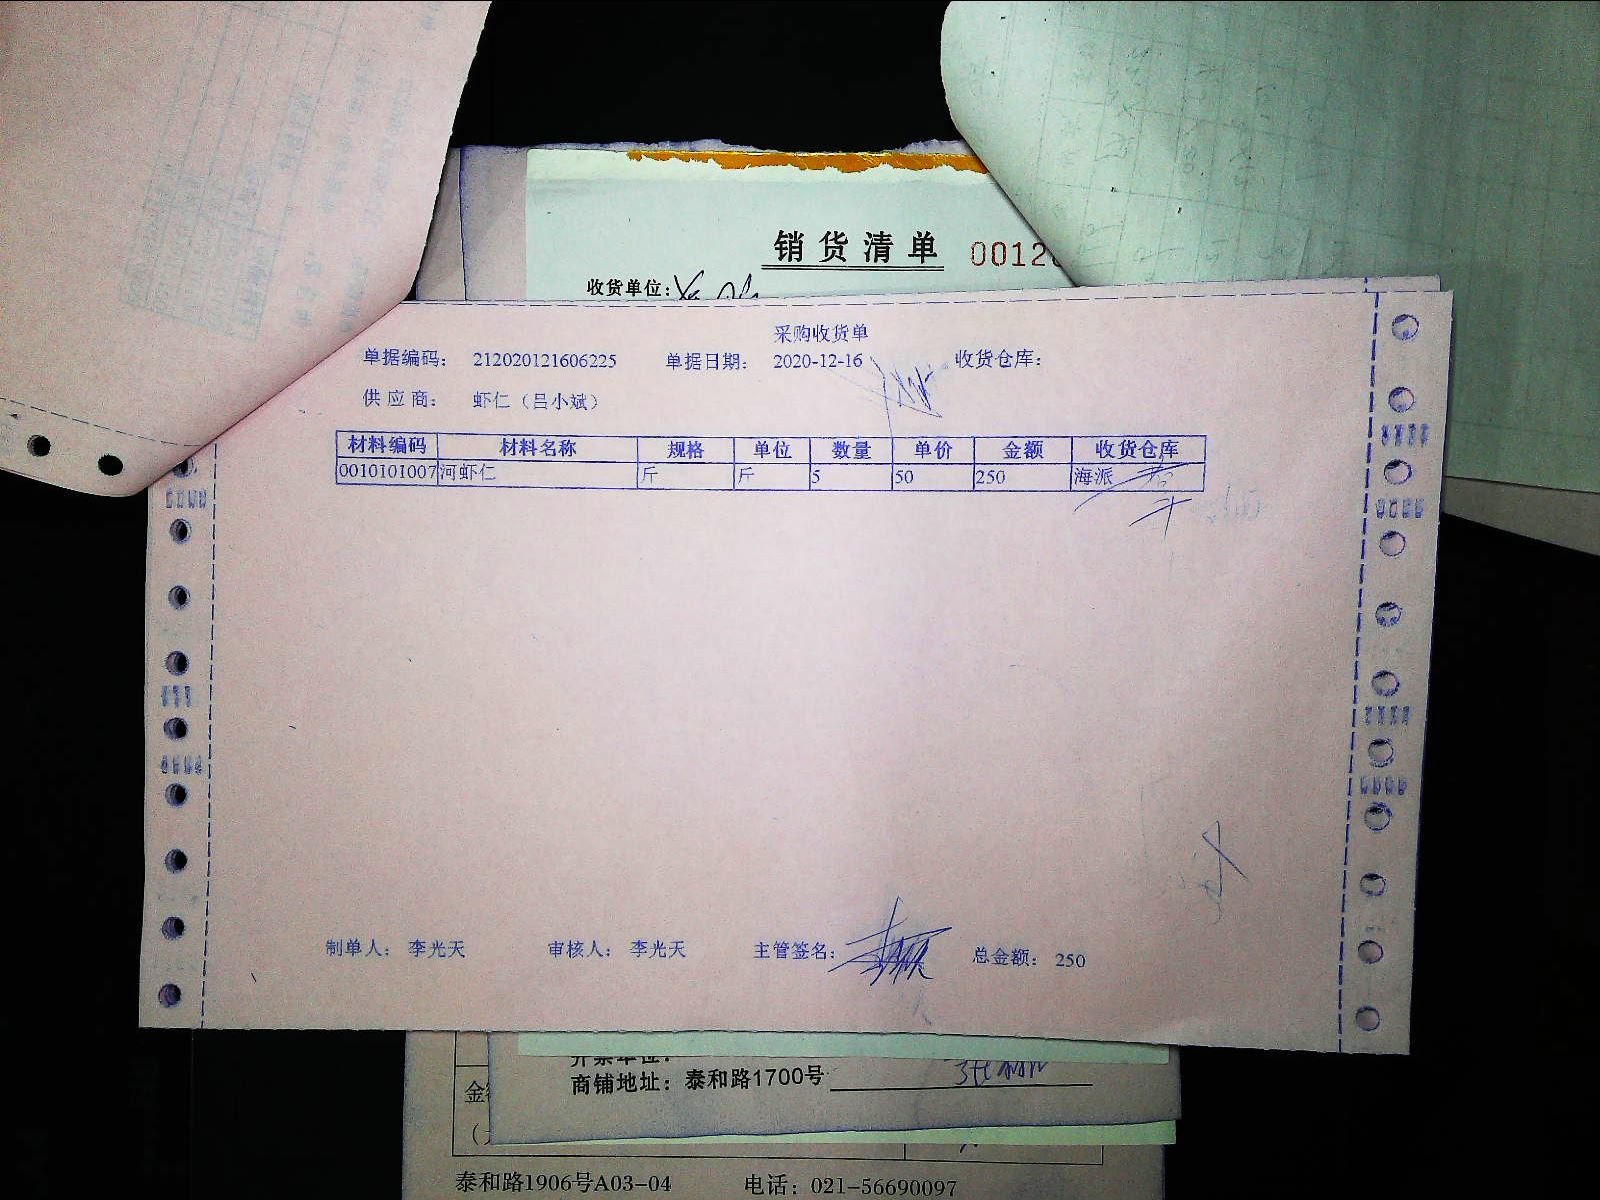 销货清单
收货单位:
采购收货单
单据编码: 212020121606225 单据日期: 2020-12-16 收货仓库:
供应商: 虾仁（吕小斌）
材料编码 材料名称 规格 单位 数量 单价 金额 收货仓库
0010101007 河虾仁 斤 斤 5 50 250 海派
制单人: 李光天 审核人: 李光天 主管签名: 总金额: 250
商铺地址: 泰和路1700号
泰和路1906号A03-04 电话: 021-56690097